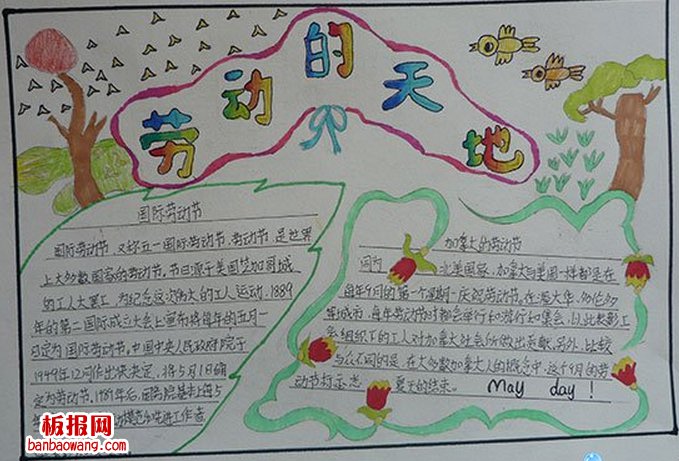 劳动的天地
国际劳动节
国际劳动节,又称五一国际劳动节,劳动节,是世界
上大多数国家的劳动节。节日源于美国芝加哥城
的工人大罢工,为纪念这次伟大的工人运动,1889
年的第二国际成立大会上宣布将每年的五月一
日定为国际劳动节。中国中央人民政府政院于
1949年12月作出决定,将5月1日确
定为劳动节。1989年后,国务院基本上每5
模范和先进工作者
加拿大的劳动节
因为
北美国家,加拿大与美国一样都是在
每年9月的第一个星期一庆祝劳动节。在渥太华、多伦多
等城市,每年劳动节时都会举行和游行和集会,以此表彰工
会组织下的工人对加拿大社会所做出贡献。另外,比较
与众不同的是,在大多数加拿大人的概念中,这个9月的劳
动节标志
夏天的结束。
May day!
板报网
banbaowang.com